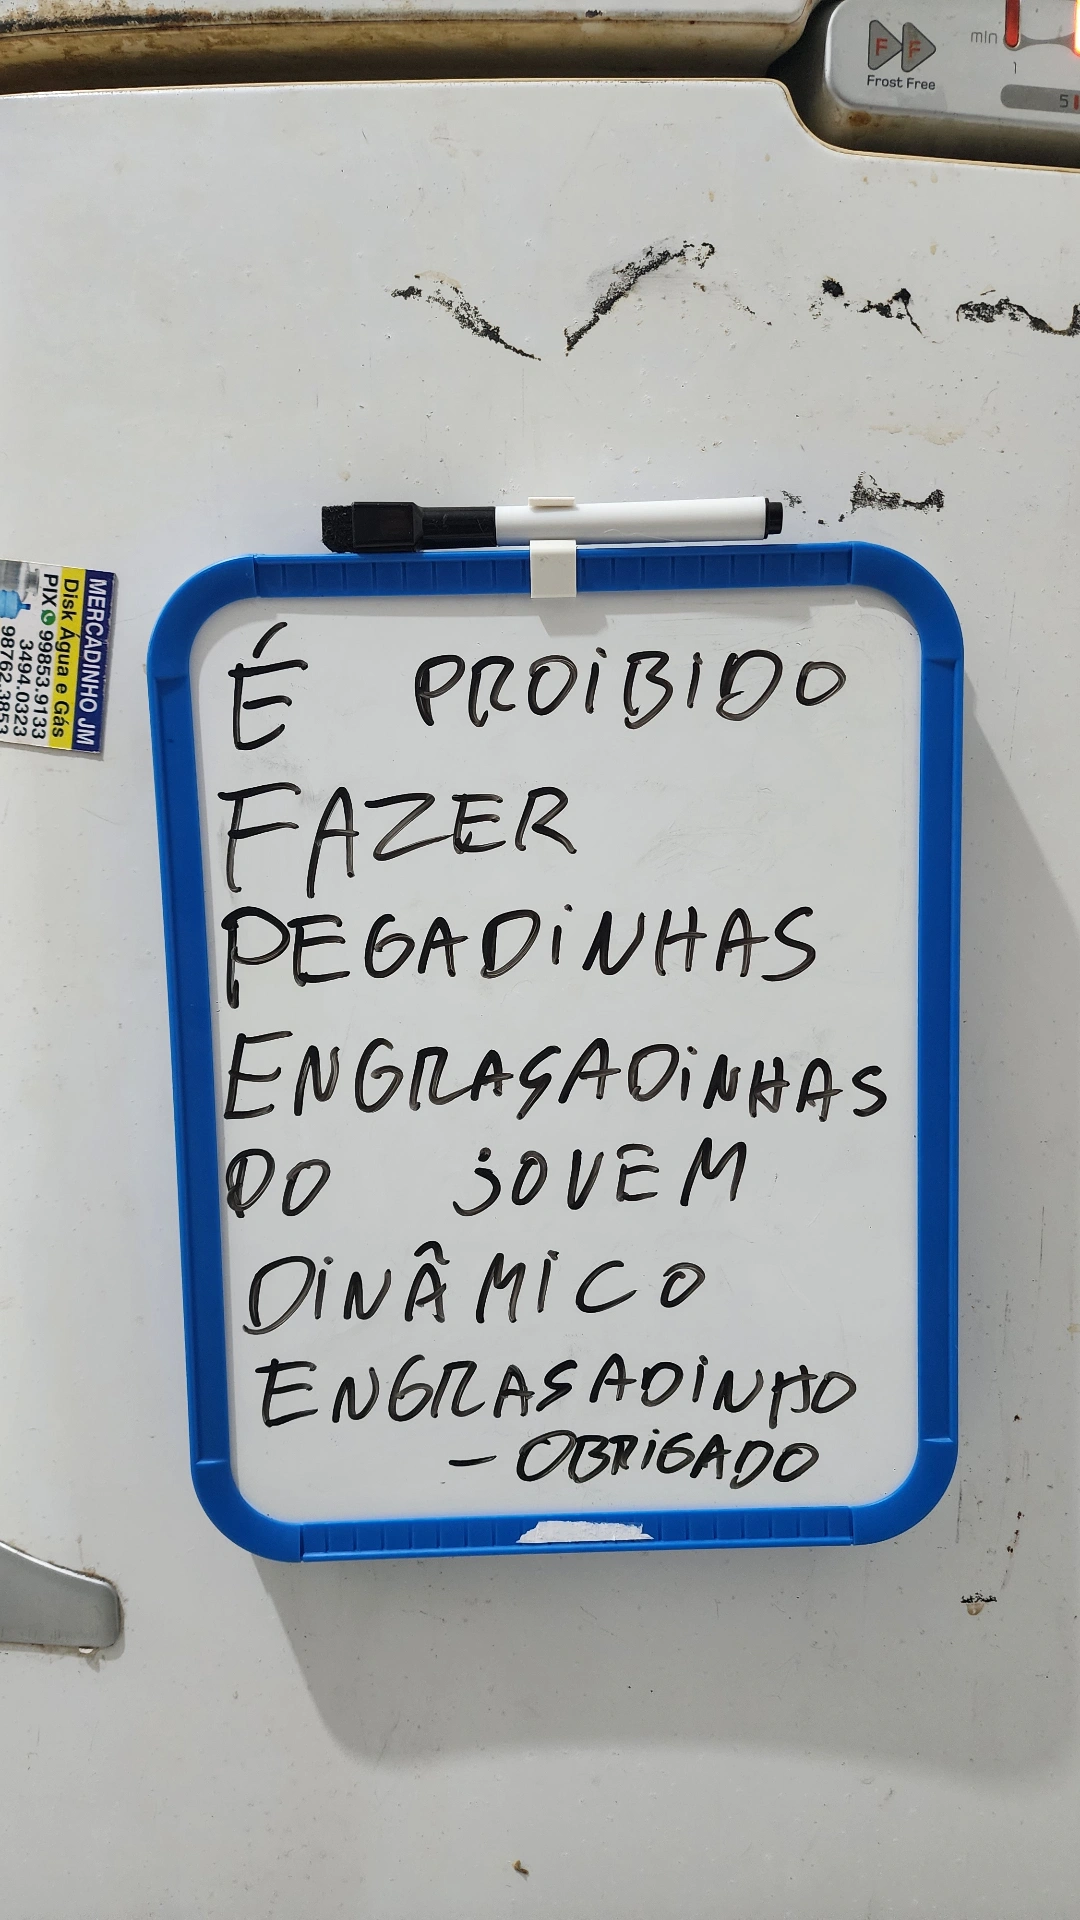 FF
Frost Free
min
1
5
MERCADINHO JM
Disk Água e Gás
PIX 99853.9133
3494.0323
98762.3853
É PROIBIDO
FAZER
PEGADINHAS
ENGRAÇADINHAS
DO JOVEM
DINÂMICO
ENGRASADINHO
- OBRIGADO